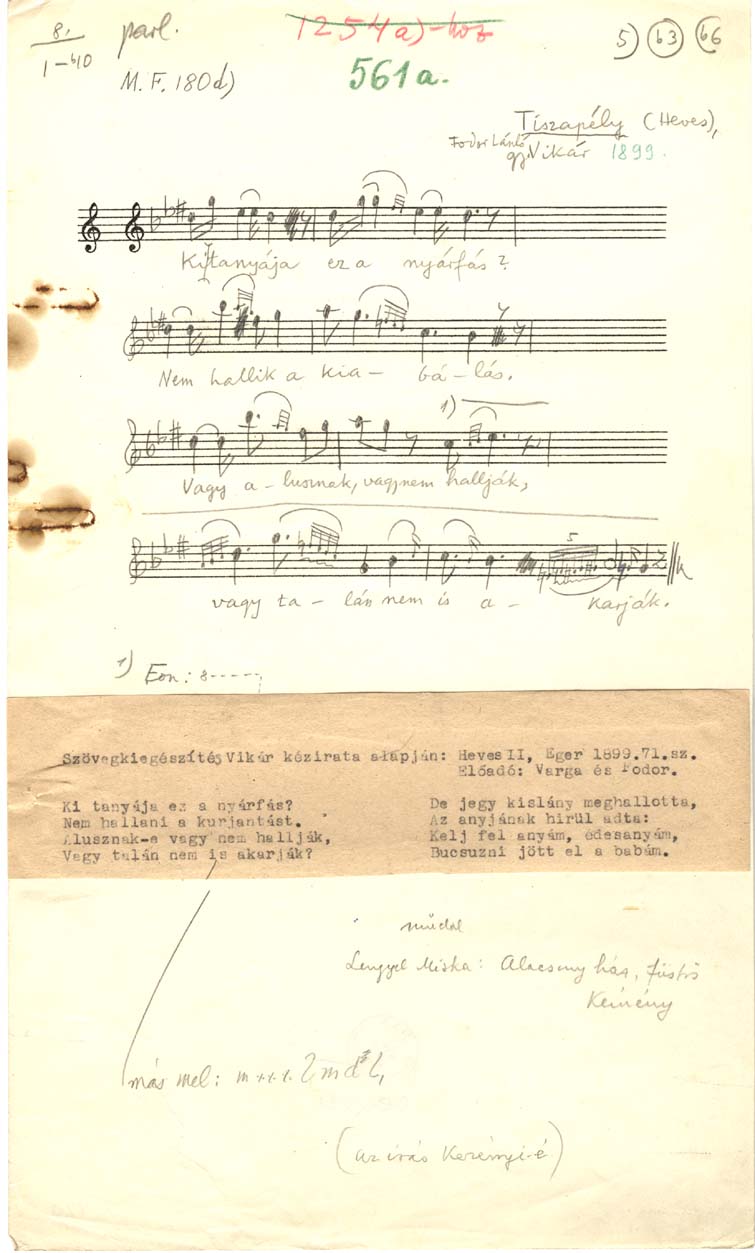 8.
1–♭10
parl.
1254a)-hoz
5) ♭3 ♭6
M. F. 180d)
561a.
Tiszapély (Heves),
Fodor László
gy. Vikár 1899.
Ki tanyája ez a nyárfás?
Nem hallik a kia- bá-lás.
1)
Vagy a-lusznak, vagy nem hallják,
5
vagy ta-lán nem is a- karják.
1) Eon: 8-----
Szövegkiegészítés Vikár kézirata alapján: Heves II, Eger 1899.71.sz.
Előadó: Varga és Fodor.
Ki tanyája ez a nyárfás?
Nem hallani a kurjantást.
Alusznak-e vagy nem hallják,
Vagy talán nem is akarják?
De jegy kislány meghallotta,
Az anyjának hírül adta:
Kelj fel anyám, édesanyám,
Bucsuzni jött el a babám.
műdal
Lengyel Miska: Alacsony ház, füstös
Kémény
más mel:
(az írás Kerényi-é)